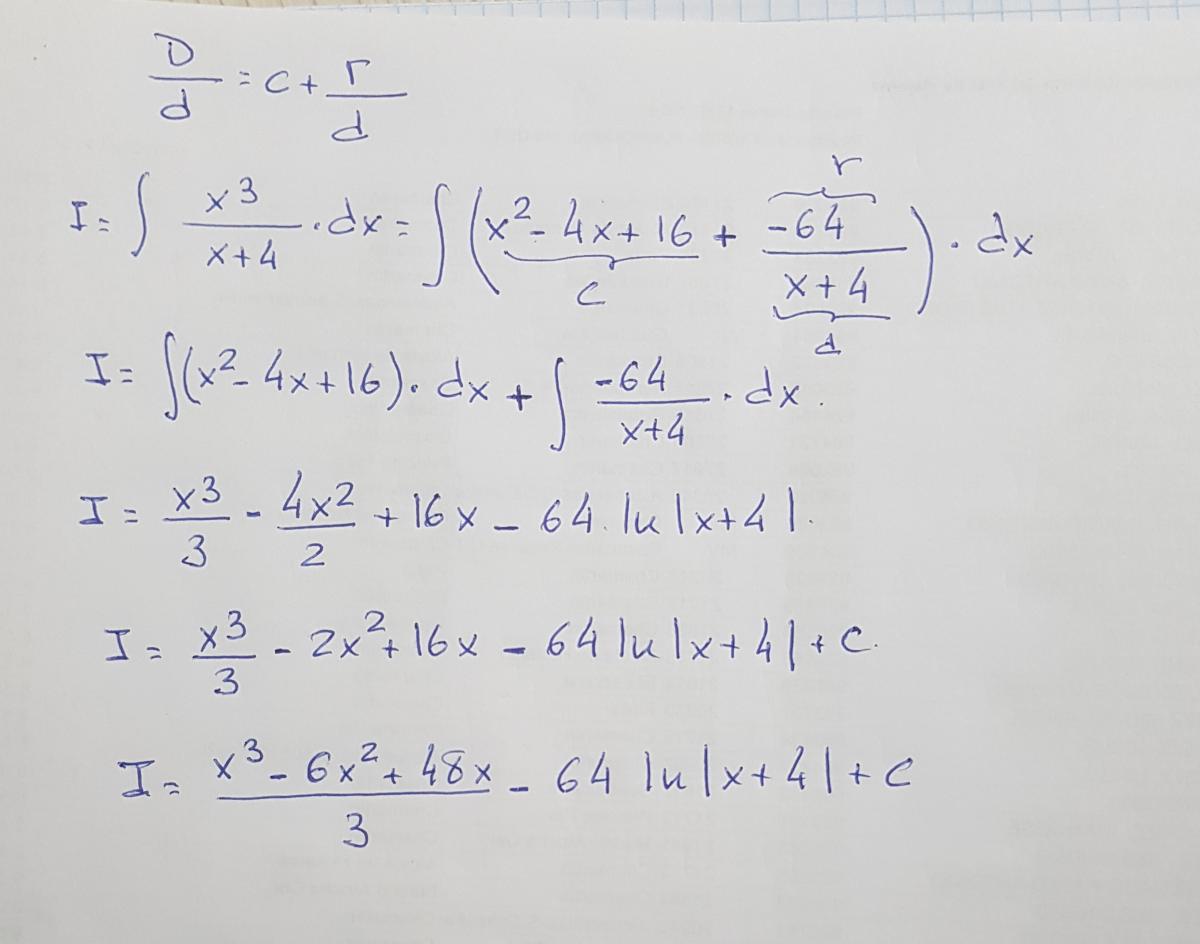 D/d = c + r/d
I = ∫ x³/(x+4) · dx = ∫ (x² - 4x + 16 + -64/(x+4)) · dx
r
c
d
I = ∫(x² - 4x + 16) · dx + ∫ -64/(x+4) · dx.
I = x³/3 - 4x²/2 + 16x - 64 · ln|x+4|.
I = x³/3 - 2x² + 16x - 64 ln|x+4| + c.
I = (x³ - 6x² + 48x)/3 - 64 ln|x+4| + c